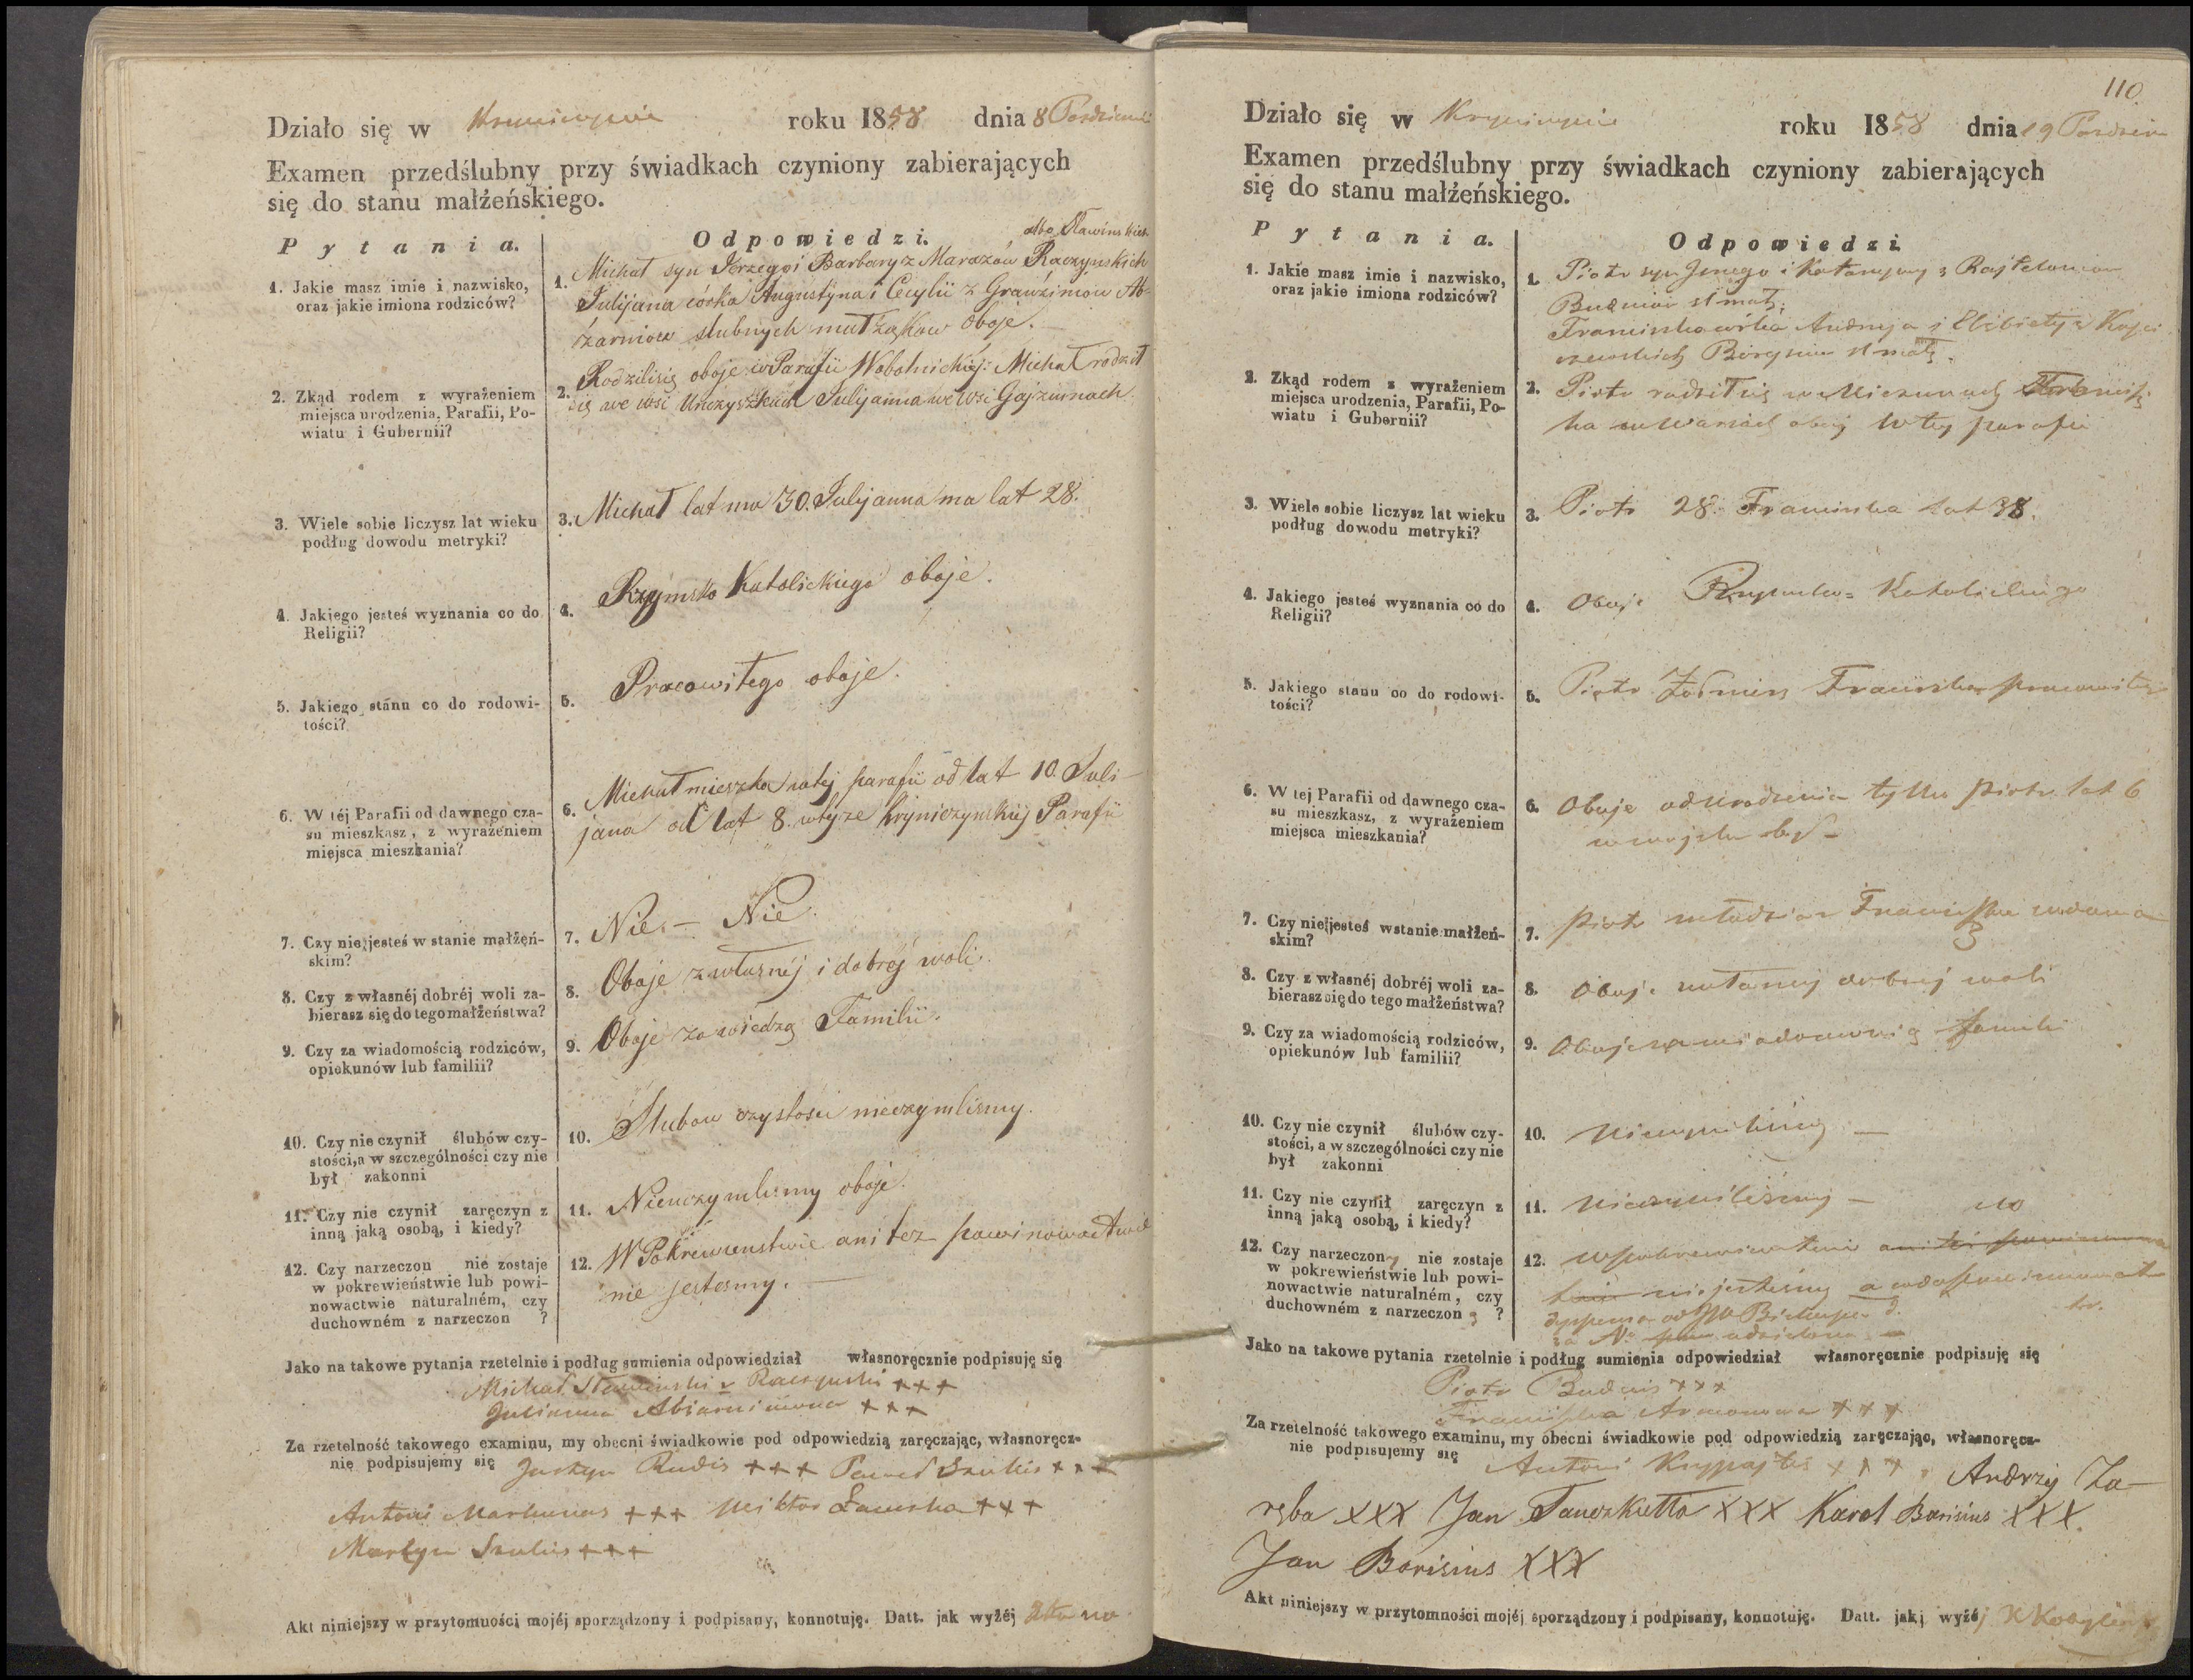 Działo się w roku 1858 dnia 8
Examen przedślubny przy świadkach czyniony zabierających
się do stanu małżeńskiego.
albo Sławinskich
Pytania. Odpowiedzi.
1. Jakie masz imie i nazwisko,
oraz jakie imiona rodziców?
1. Michał syn Jerzego i Barbary z Marazów Raczynskich
Julijana córka Augustyna i Cecylii z Grawżimow Ab-
żarniow slubnych małżąkow oboje.
2. Zkąd rodem z wyrażeniem
miejsca urodzenia, Parafii, Po-
wiatu i Gubernii?
2. Rodzilisię oboje w Parafii Wobolnickiej: Michał rodził
się we wsi Julijanna we wsi Gajżunach
3. Wiele sobie liczysz lat wieku
podług dowodu metryki?
3. Michał lat ma 30. Julijanna ma lat 28.
4. Jakiego jesteś wyznania co do
Religii?
4. Rzymsko Katolickiego oboje.
5. Jakiego stanu co do rodowi-
tości?
5. Pracowitego oboje.
6. W téj Parafii od dawnego cza-
su mieszkasz, z wyrażeniem
miejsca mieszkania?
6. Michał mieszka w tej parafii od lat 10. Juli-
jana od lat 8. w tejże Kryniczynskiéj Parafii
7. Czy nie jesteś w stanie małżeń-
skim?
7. Nie. – Nie.
8. Czy z własnéj dobréj woli za-
bierasz się do tego małżeństwa?
8. Oboje z własnéj i dobréj woli.
9. Czy za wiadomością rodziców,
opiekunów lub familii?
9. Oboje za wiedzą Familii.
10. Czy nie czynił ślubów czy-
stości, a w szczególności czy nie
był zakonni
10. Slubow czystosci nieczynilismy.
11. Czy nie czynił zaręczyn z
inną jaką osobą, i kiedy?
11. Nieuczynilismy oboje.
12. Czy narzeczon nie zostaje
w pokrewieństwie lub powi-
nowactwie naturalném, czy
duchowném z narzeczon ?
12. W Pokrewenstwie ani tez powinowactwie
nie jestesmy. –
Jako na takowe pytania rzetelnie i podług sumienia odpowiedział własnoręcznie podpisuję się
Michał Sławinski v Raczynski +++
Julianna +++
Za rzetelność takowego examinu, my obecni świadkowie pod odpowiedzią zaręczając, własnoręcz-
nie podpisujemy się Justyn Rudis +++ Paweł Szukis +++
Antoni Markunas +++ Wiktor +++
Martyn Szukis +++
Akt niniejszy w przytomności mojéj sporządzony i podpisany, konnotuję. Datt. jak wyżéj
110.
Działo się w roku 1858 dnia 19
Examen przedślubny przy świadkach czyniony zabierających
się do stanu małżeńskiego.
Pytania. Odpowiedzi.
1. Jakie masz imie i nazwisko,
oraz jakie imiona rodziców?
1. Piotr syn Jerzego i Katarzyny z
Franciszka córka Andrzeja i Elżbiety z
2. Zkąd rodem z wyrażeniem
miejsca urodzenia, Parafii, Po-
wiatu i Gubernii?
2. Piotr rodził się w
w tej parafii
3. Wiele sobie liczysz lat wieku
podług dowodu metryki?
3. Piotr 28. Franciszka lat 38.
4. Jakiego jesteś wyznania co do
Religii?
4. Oboje Rzymsko-Katolickiego
5. Jakiego stanu co do rodowi-
tości?
5. Piotr Żołnierz Franciszka
6. W tej Parafii od dawnego cza-
su mieszkasz, z wyrażeniem
miejsca mieszkania?
6. Oboje od urodzenia tylko Piotr lat 6
w wojsku był –
7. Czy nie jesteś wstanie małżeń-
skim?
7. Piotr młodzian Franciszka wdowa
8. Czy z własnéj dobréj woli za-
bierasz się do tego małżeństwa?
8. Oboje dobrej woli
9. Czy za wiadomością rodziców,
opiekunów lub familii?
9. Oboje za wiadomością familii
10. Czy nie czynił ślubów czy-
stości, a w szczególności czy nie
był zakonni
10. Nieczyniliśmy –
11. Czy nie czynił zaręczyn z
inną jaką osobą, i kiedy?
11. Nieczyniliśmy –
12. Czy narzeczony nie zostaje
w pokrewieństwie lub powi-
nowactwie naturalném, czy
duchowném z narzeczoną ?
12. nie jesteśmy a
od JW Biskupa d.
za No udzielona –
Jako na takowe pytania rzetelnie i podług sumienia odpowiedział własnoręcznie podpisuję się
Piotr +++
Franciszka +++
Za rzetelność takowego examinu, my obecni świadkowie pod odpowiedzią zaręczając, własnoręcz-
nie podpisujemy się Antoni +++, Andrzej Za-
ręba XXX Jan Tauczkutta XXX Karol Barisius XXX.
Jan Borisius XXX
Akt niniejszy w przytomności mojéj sporządzony i podpisany, konnotuję. Datt. jak wyżéj